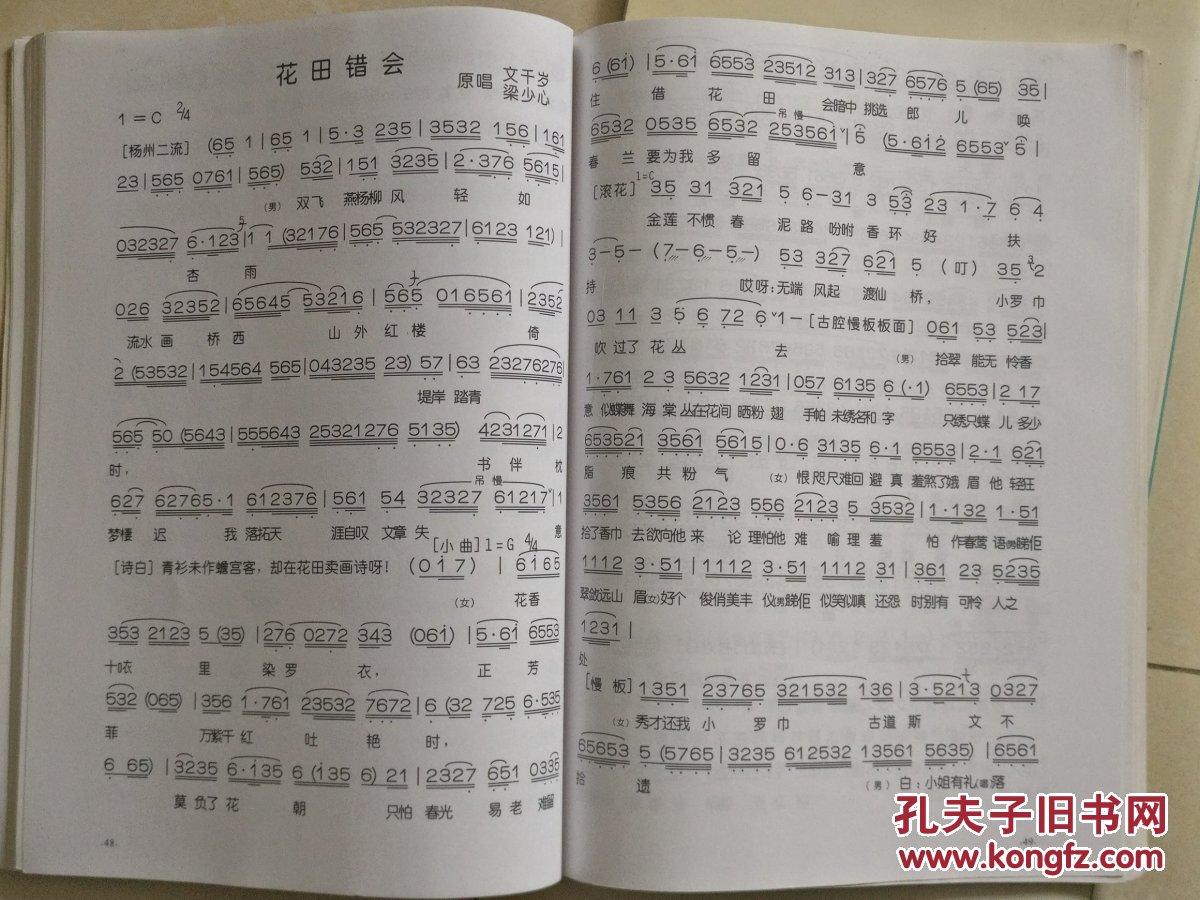 花田错会
原唱 文千岁
梁少心
1=C 2/4
[杨州二流] (65 1|65 1|5·3 235|3532 156|161
23|565 0761|565) 532|151 3235|2·376 5615|
(男) 双飞 燕杨柳 风 轻 如
032327 6·123|1 1 (32176|565 532327|6123 121)|
杏 雨
026 32352|65645 53216|565 016561|2352
流水 画 桥 西 山 外 红 楼 倚
2 (53532|154564 565|043235 23) 57|63 23276276|
堤岸 踏青
565 50 (5643|555643 25321276 5135) 4231271|2
时, 书 伴 枕
吊 慢
627 62765·1 612376|561 54 32327 61217|1
梦棲 迟 我 落拓天 涯自叹 文章 失 意
[小 曲] 1=G 4/4
[诗白] 青衫未作蟾宫客, 却在花田卖画诗呀! (017)|6165
(女) 花香
353 2123 5 (35)|276 0272 343 (061)|5·61 6553
十哝 里 染 罗 衣, 正 芳
532 (065)|356 1·761 23532 7672|6 (32 725 6·535
菲 万紫千 红 吐 艳 时,
6 65)|3235 6·135 6 (135 6) 21|2327 651 0335
莫 负了 花 朝 只怕 春光 易 老 难留
·48·
6 (61)|5·61 6553 23512 313|327 6576 5 (65) 35|
住 借 花 田 会暗中 挑选 郎 儿 唤
吊 慢
6532 0535 6532 253561|5 (5·612 6553 5|
春 兰 要为我 多 留 意
[滚花] 1=C 35 31 321 5 6-31 3 53 23 1·7 6 4
金莲 不惯 春 泥 路 吩咐 香 环 好 扶
3-5-(7-6-5-) 53 327 621 5 (叮) 35 2
持 哎呀:无端 风起 渡仙 桥, 小罗 巾
03 11 3 5 6 72 6 1-[古腔慢板板面] 061 53 523|
吹 过了 花 丛 去 (男) 拾翠 能无 怜香
1·761 2 3 5632 1231|057 6135 6 (·1) 6553|2 17
意 似蝶舞 海 棠 丛在花间 晒粉 翅 手帕 未绣名和 字 只绣只蝶 儿 多少
653521 3561 5615|0·6 3135 6·1 6553|2·1 621
脂 痕 共 粉 气 (女) 恨 咫尺难回 避 真 羞煞了娥 眉 他 轻狂
3561 5356 2123 556 2123 5 3532|1·132 1·51
拾了香巾 去欲向他 来 论 理怕他 难 喻 理 羞 怕 作春莺 语(男)睇佢
1112 3·51|1112 3·51 1112 3·51|361 23 5235
翠敛远山 眉(女)好个 俊俏美丰 仪(男)睇佢 似笑似嗔 还怨 时别有 可怜 人之
1231|
处
[慢 板] 1351 23765 321532 136|3·5213 0327
(女) 秀才还我 小 罗 巾 古道 斯 文 不
65653 5 (5765|3235 612532 13561 5635)|6561
拾 遗 (男) 白:小姐有礼(唱)落
·49·
孔夫子旧书网
www.kongfz.com